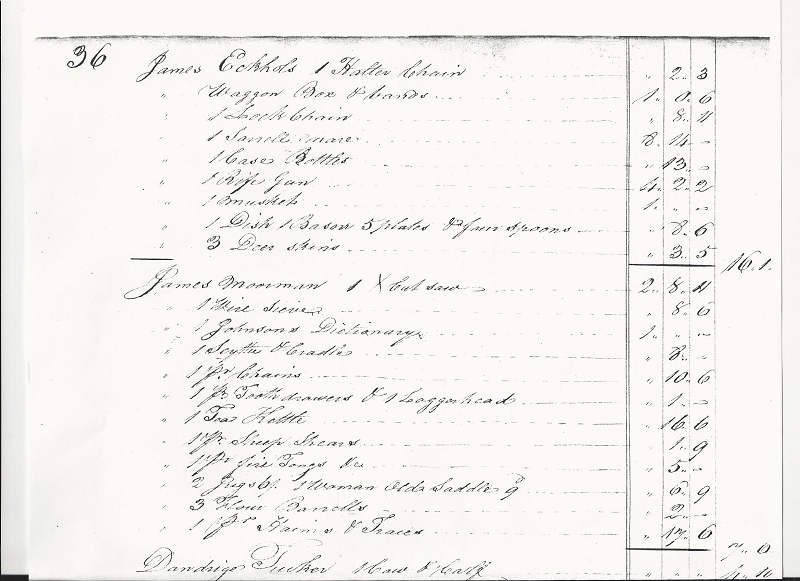 36
James Eckhols 1 Halter Chain " 2 .. 3
" Waggon Box & bands 1 .. 0 .. 6
" 1 Lock Chain " 8 .. 4
" 1 Sorrell mare 8 .. 14 .. -
" 1 Case Bottles " 13 .. -
" 1 Rifle Gun 4 .. 2 .. 2
" 1 Musket 1 .. " .. -
" 1 Dish 1 Bason 5 plates & four spoons " 8 .. 6
" 3 Deer skins " 3 .. 5
16 .. 1 ..
James Moorman 1 X Cut saw 2 .. 8 .. 4
" 1 Wire Sieve " 8 .. 6
" 1 Johnsons Dictionary 1 .. " .. -
" 1 Scythe & Cradle " 8 .. -
" 1 pr Chains " 10 .. 6
" 1 pr Toothdrawers & 1 Loggerhead " 1 .. -
" 1 Tea Kettle " 16 .. 6
" 1 pr Sheep Shears " 1 .. 9
" 1 pr fire Tongs &c " 5 .. -
" 2 1 Woman Old Saddle " 6 .. 9
" 3 Flour Barrells " 2 .. -
" 1 pr Haims & Traces " 17 .. 6
7 .. 0
Dandrige Tucker 1 Cow & Calf 4 .. 10